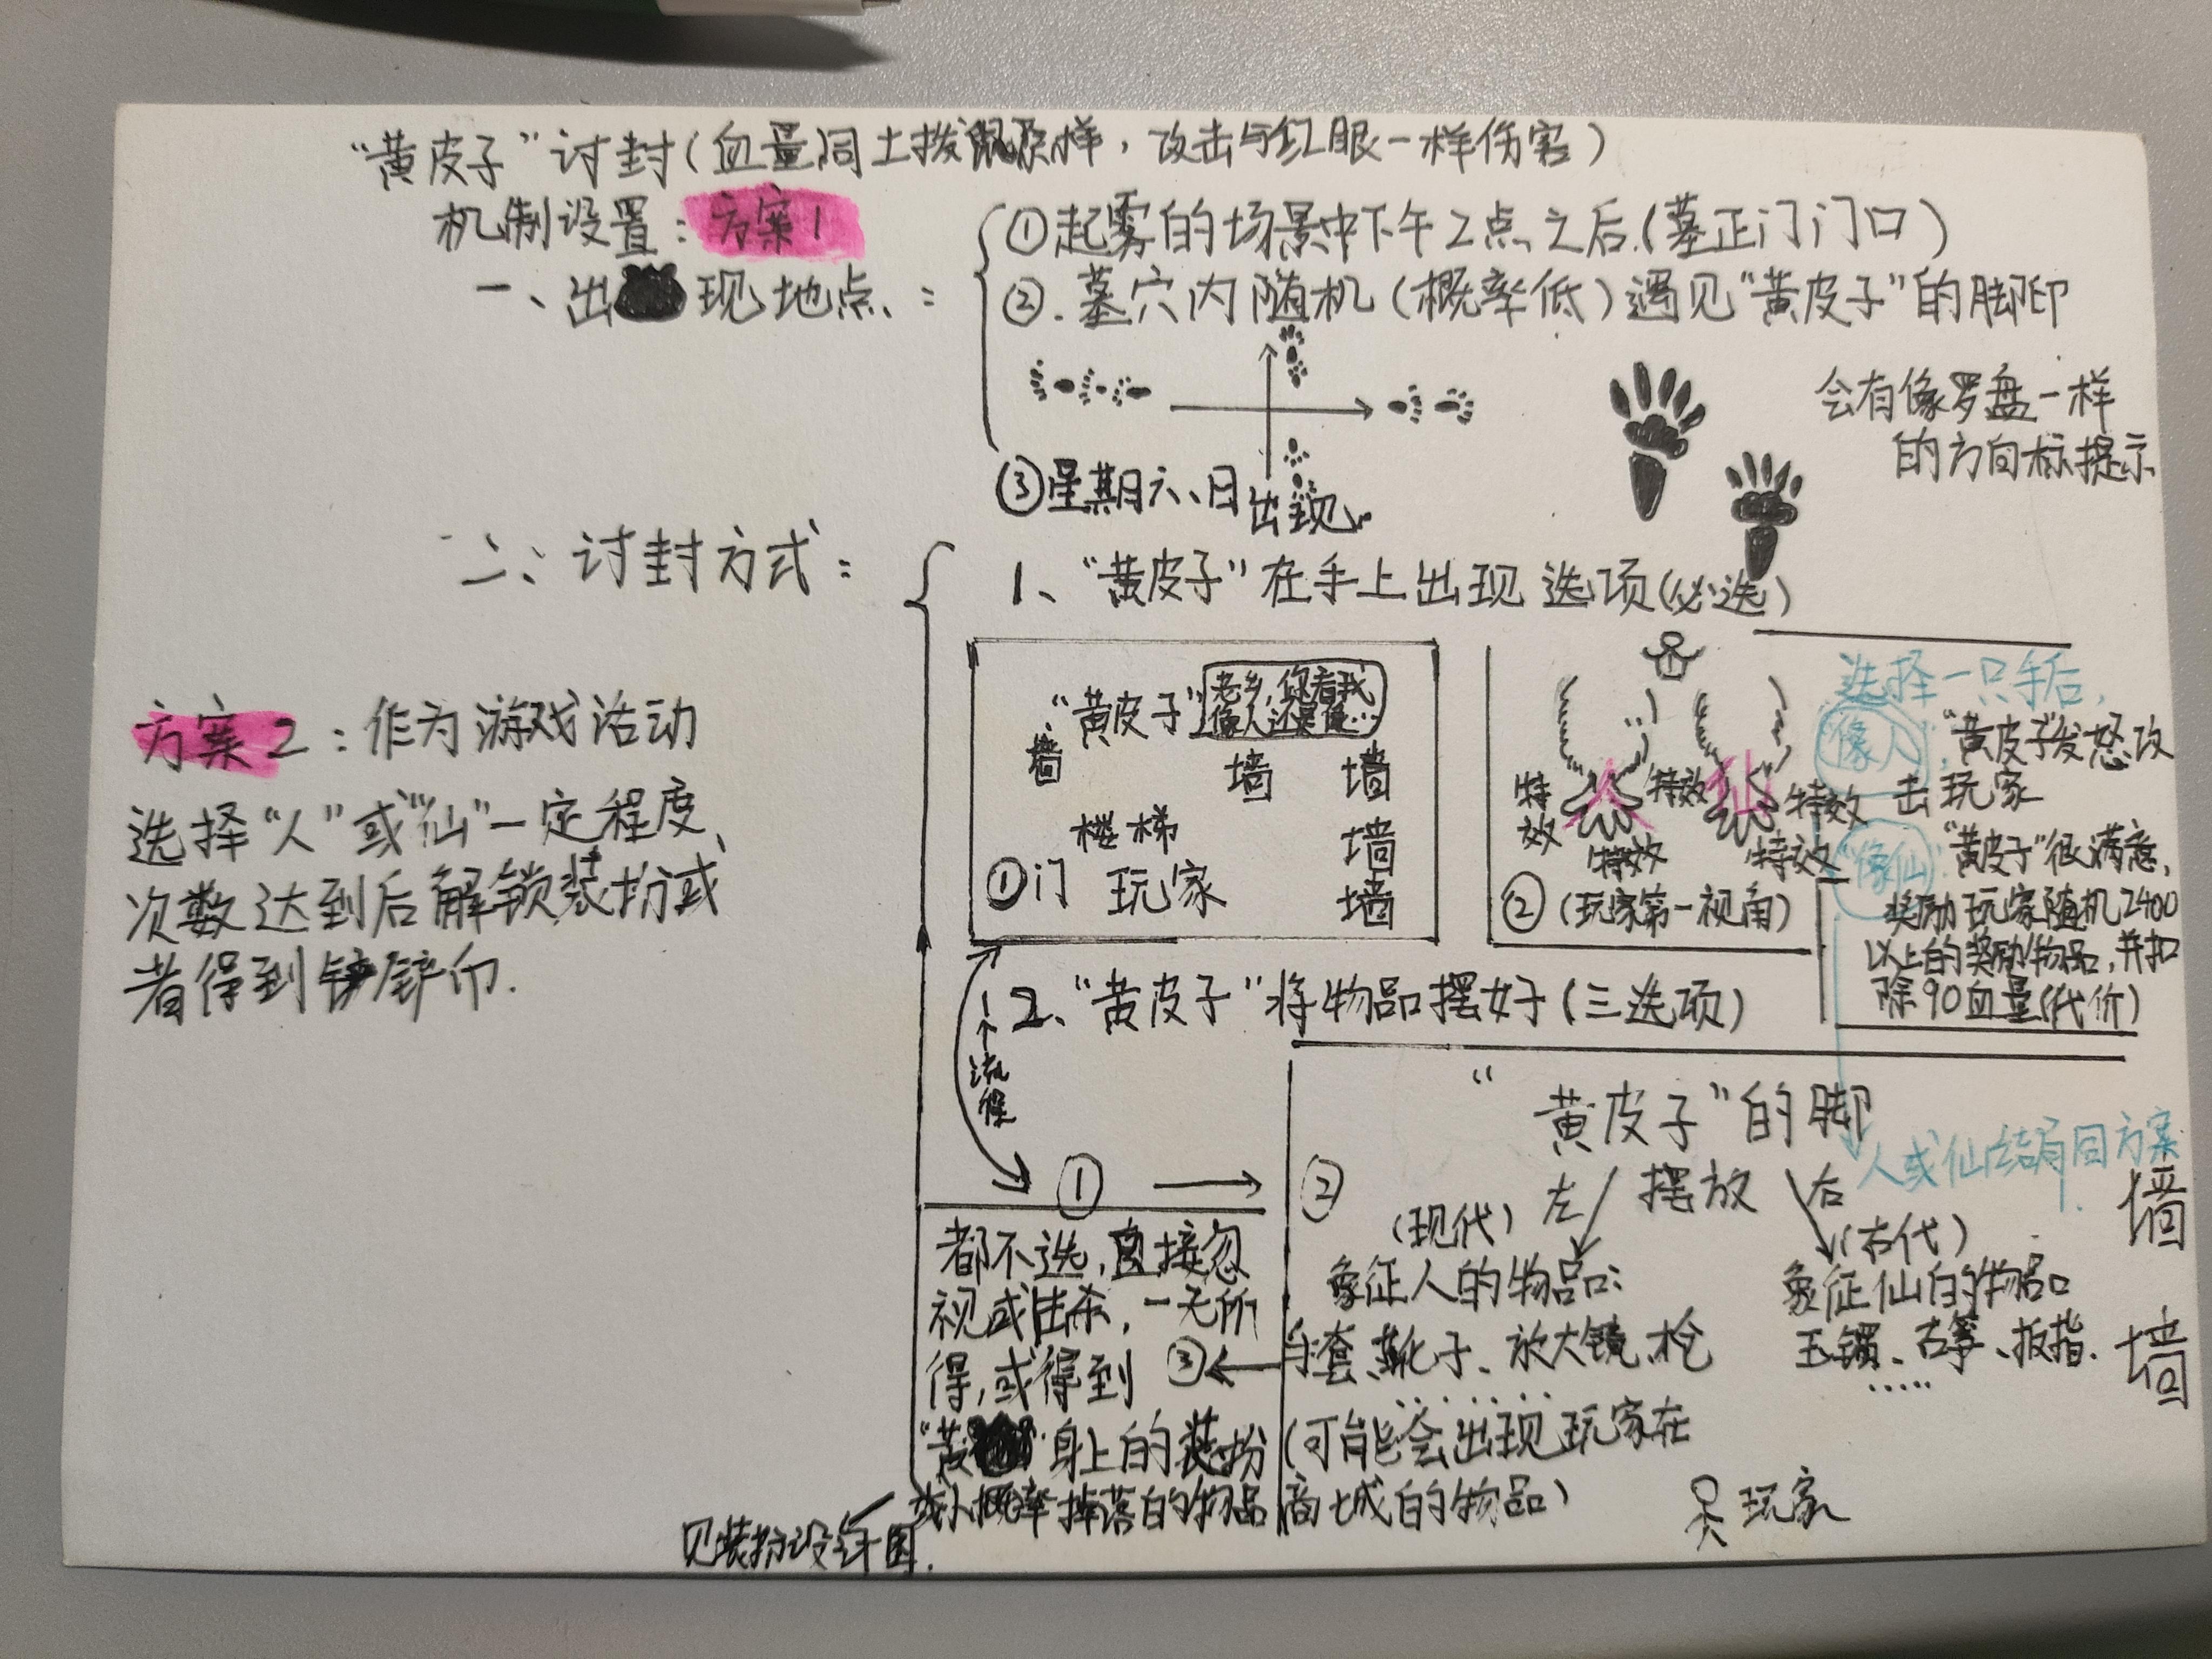 “黄皮子”讨封(血量同土拨鼠原样，攻击与红眼一样伤害)
机制设置：方案1
一、出现地点：
①起雾的场景中下午2点之后.(墓正门门口)
②.墓穴内随机(概率低)遇见“黄皮子”的脚印
会有像罗盘一样
的方向标提示
③星期六、日出现.
二、讨封方式：
1、“黄皮子”在手上出现选项(必选)
“黄皮子”
老乡，你看我
像人还是像…
墙
墙
墙
楼梯
墙
①门
玩家
墙
人
仙
特效
特效
特效
特效
特效
②(玩家第一视角)
选择一只手后，
“像人”，“黄皮子”发怒攻
击玩家
“像仙”“黄皮子”很满意，
奖励玩家随机2400
以上的奖励物品，并扣
除90血量(代价)
方案2：作为游戏活动
选择“人”或“仙”一定程度、
次数达到后解锁装扮或
者得到铲铲币.
1个流程
2、“黄皮子”将物品摆好(三选项)
①
都不选，直接忽
视或击杀，一无所
得，或得到
“黄 ”身上的装扮
或小概率掉落的物品
见装扮设计图.
②
“黄皮子”的脚
人或仙结局同方案
左
摆放
右
(现代)
(古代)
象征人的物品：
手套、靴子、放大镜、枪
……
象征仙的物品
玉镯、古筝、扳指.
……
③
(可能会出现玩家在
商城的物品)
玩家
墙
墙